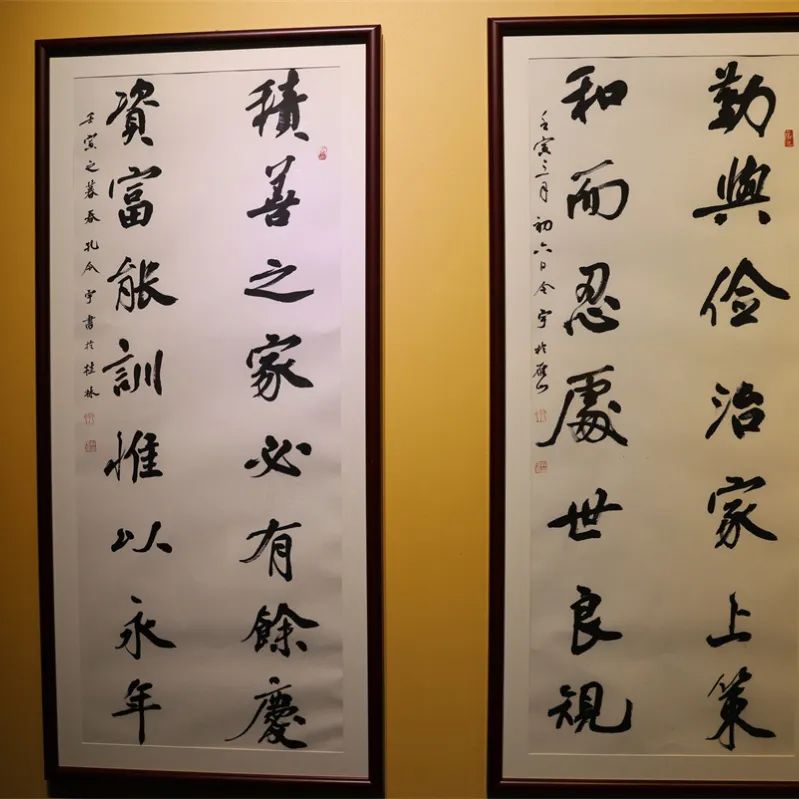 勤與儉治家上策
和而忍處世良規
壬寅三月初六日令宇於雁山
積善之家必有餘慶
資富能訓惟以永年
壬寅之暮春孔令宇書於桂林